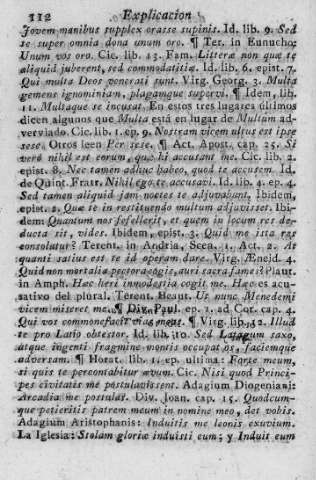 112 Explicacion
Jovem manibus supplex orasse supinis. Id. lib. 9. Sed
te super omnia dona unum oro. ¶ Ter. in Eunucho:
Unum vos oro. Cic. lib. 13. Fam. Litteræ non quæ te
aliquid juberent, sed commodatitiæ. Id. lib. 6. epist. 7.
Qui multa Deos venerati sunt. Virg. Georg. 3. Multa
gemens ignominiam, plagamque supervi. ¶ Idem, lib.
11. Multaque se incusat. En estos tres lugares últimos
dicen algunos que Multa está en lugar de Multùm ad-
verviado. Cic. lib. 1. ep. 9. Nostram vicem ultus est ipse
sese. Otros leen Per sese. ¶ Act. Apost. cap. 25. Si
verò nihil est eorum, quæ hi accusant me. Cic. lib. 2.
epist. 8. Nec tamen adhuc habeo, quod te accusem. Id.
de Quint. Fratr. Nihil ego te accusavi. Id. lib. 4. ep. 4.
Sed tamen aliquid jam noctes te adjuvabant, Ibidem,
epist. 2. Quæ te in restituendo multum adjuvisset. Ibi-
dem Quantum nos fefellerit, et quem in locum res de-
ducta sit, vides. Ibidem, epist. 3. Quid me ista res
consolatur? Terent. in Andria, Scen. 1. Act. 2. At
quanti satius est te id operam dare. Virg. Æneid. 4.
Quid non mortalia pectora cogis, auri sacra fames? Plaut.
in Amph. Hæc heri immodestia cogit me. Hæc es acu-
sativo del plural. Terent. Heaut. Us nunc Menedemi
vicem miseret me. ¶ Div. Paul. ep. 1. ad Cor. cap. 4.
Qui vos commonefaciet vias meas. ¶ Virg. lib. 12. Illud
te pro Latio obtestor. Id. lib. 10. Sed Latagum saxo,
atque ingenti fragmine montis occupat os, faciemque
adversam. ¶ Horat. lib. 1. ep. ultima: Forte meum,
si quis te percontabitur ævum. Cic. Nisi quod Princi-
pes civitatis me postulavissent. Adagium Diogeniani:
Arcadia me postulas. Div. Joan. cap. 15. Quodcum-
que petieritis patrem meum in nomine meo, det vobis.
Adagium Aristophanis: Induitis me leonis exuvium.
La Iglesia: Stolam gloriæ induisti eum; y Induit eum